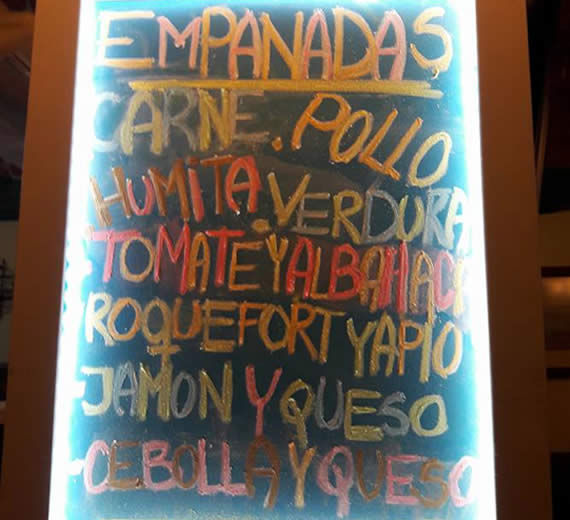 EMPANADAS
CARNE. POLLO
HUMITA. VERDURA
TOMATE Y ALBAHACA
ROQUEFORT Y APIO
JAMON Y QUESO
CEBOLLA Y QUESO